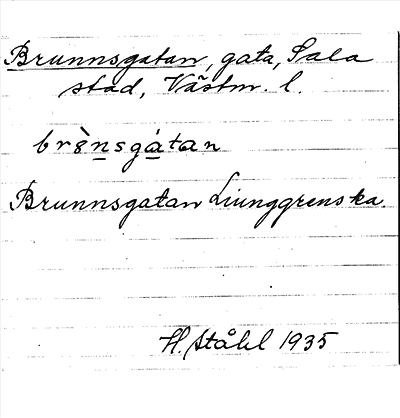 Brunnsgatan, gata, Sala
stad, Västm. l.
brùnsgátan
Brunnsgatan Liunggrenska.
H. Ståhl 1935